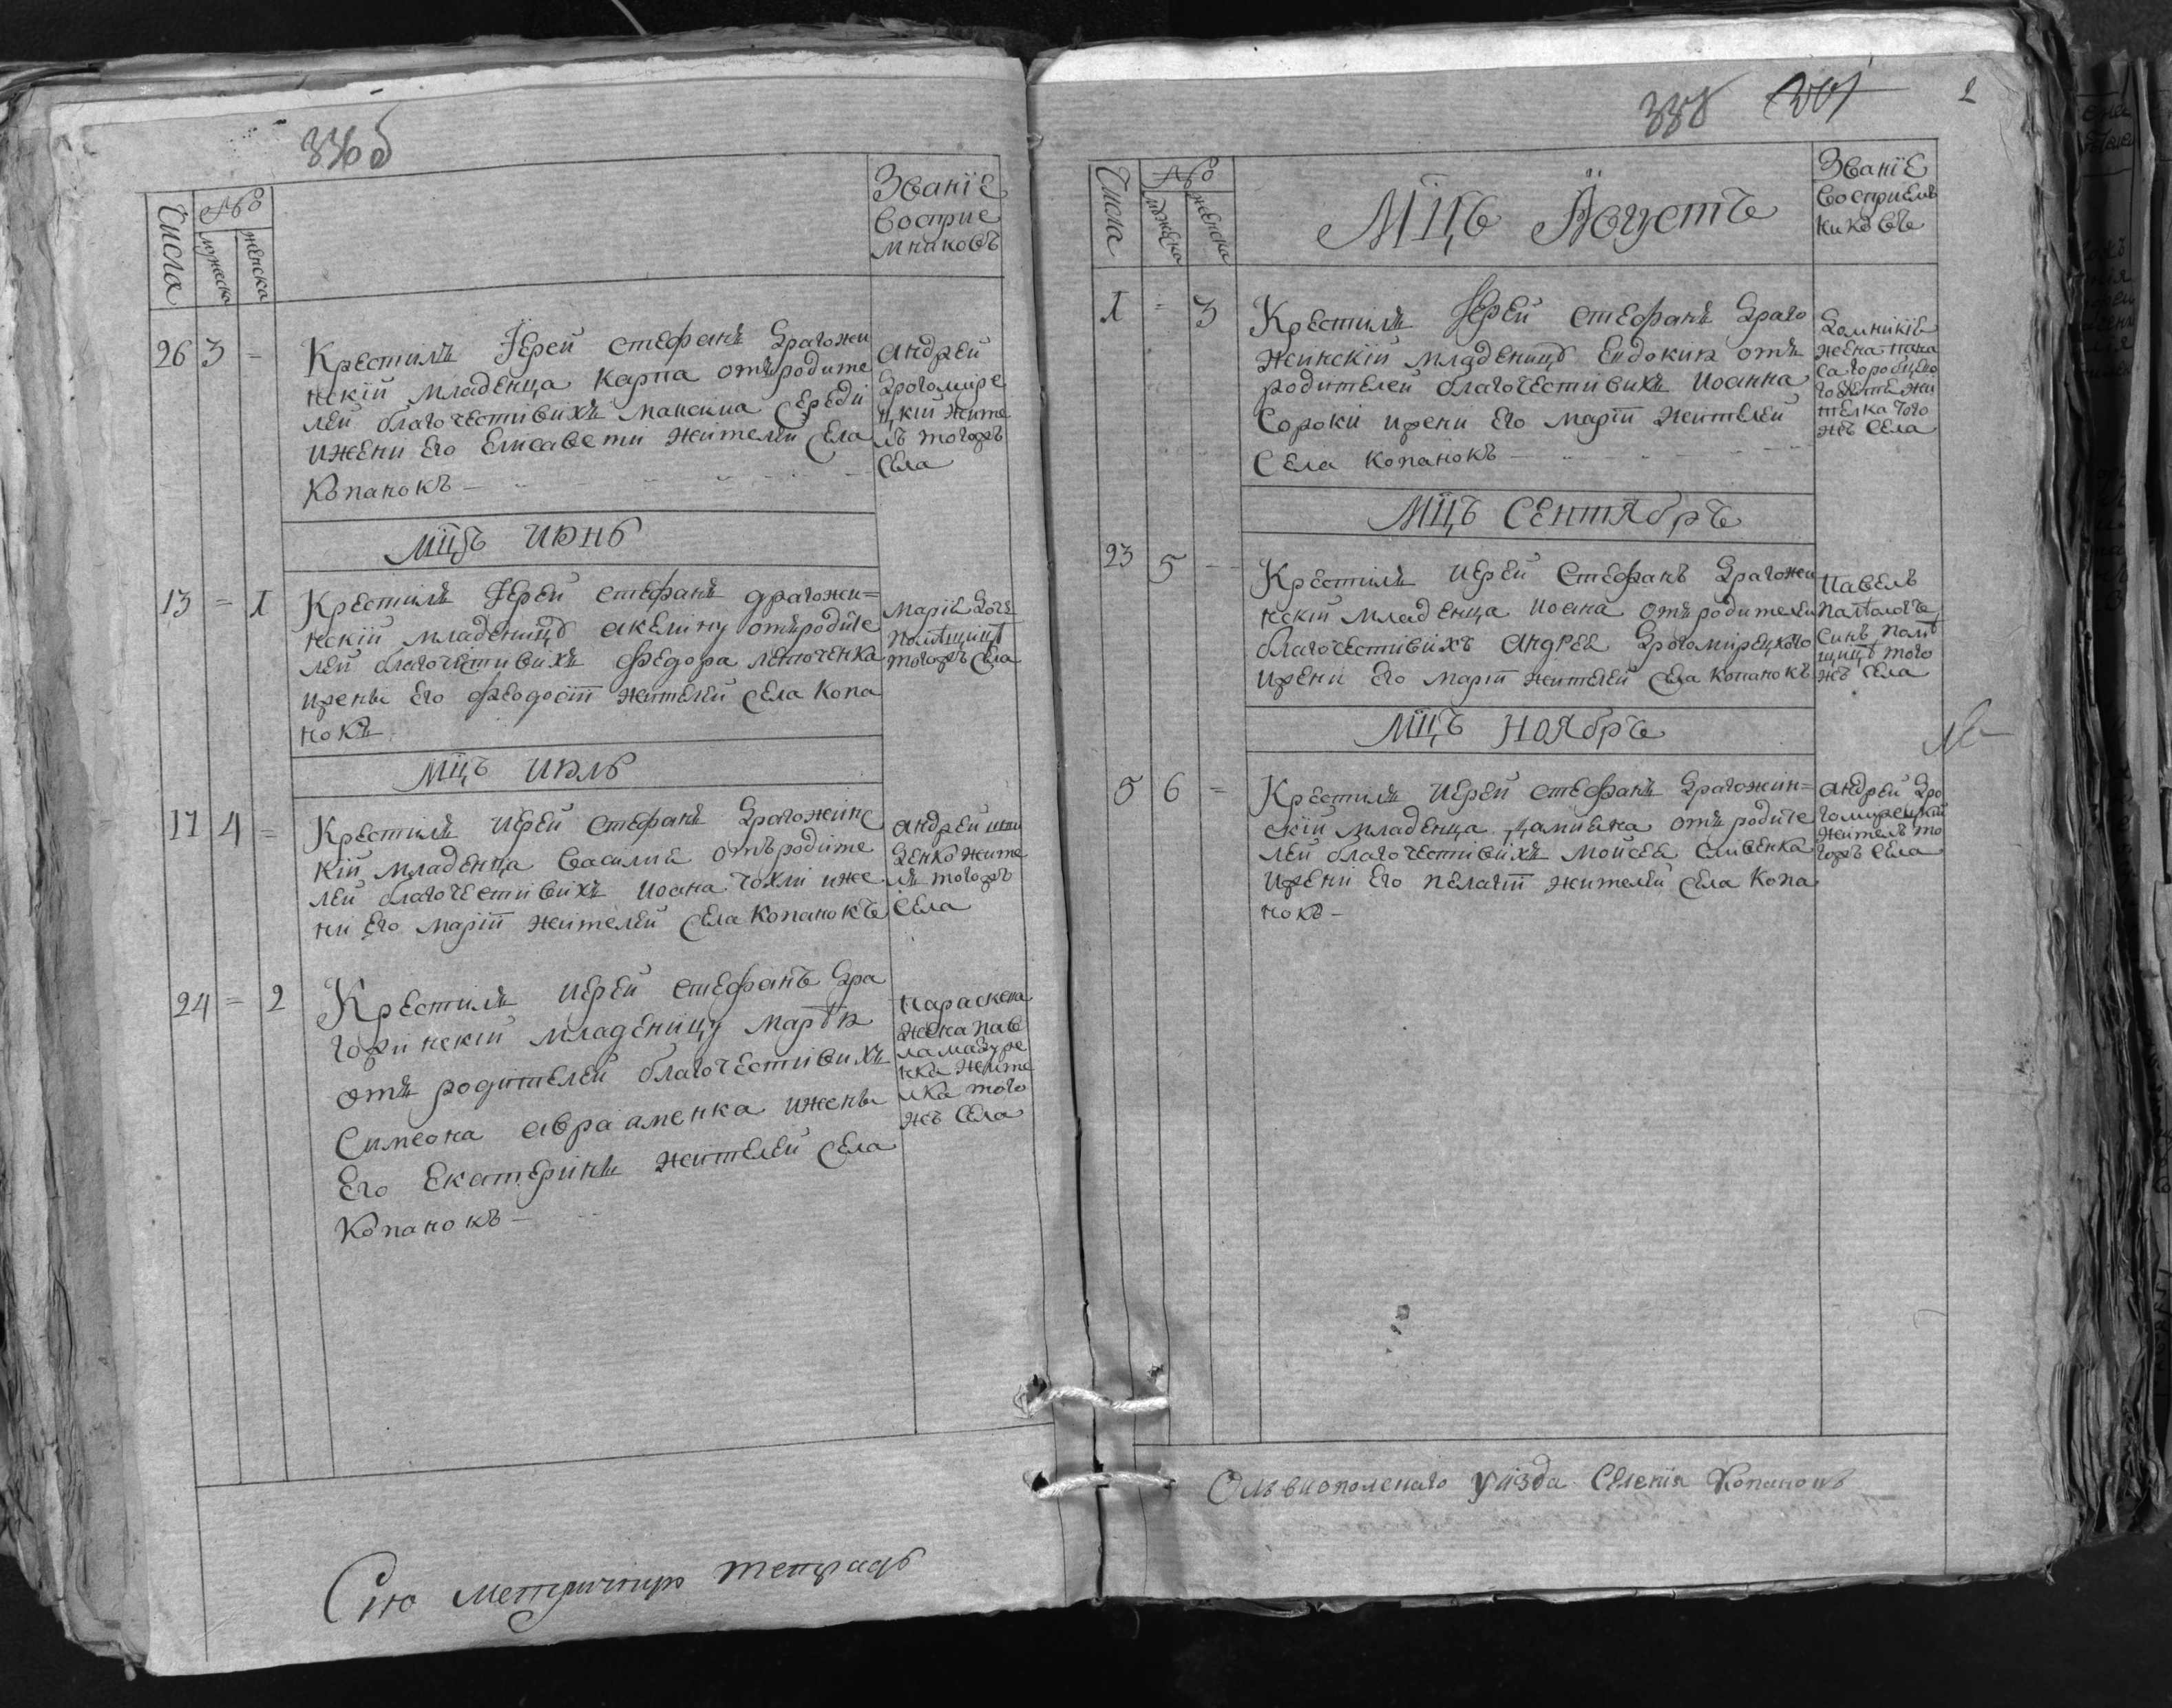 336 б
Числа
№
мужеска
женска
Званїе
восприе
мниковъ
26 3 =
Крестилъ Іерей Стефанъ Драгожи
нскїй младенца Карпа отъ родите
лей благочестивихъ Максима Середи
и жени Его Елисавети жителей Села
Копанокъ
Андрей
Дрогомире
цкїй жите
ль тогожъ
Села
Мїцъ Июнь
13 = 1
Крестилъ Іерей Стефанъ Драгожи=
нскїй младеницѹ Акелину отъ родите
лей благочестивихъ Федора
и жены Его Феодосїи жителей Села Копа
нокъ
Марїя Дочь
Помѣщицѣ
тогожъ Села
Мїцъ Июль
11 4 =
Крестилъ Иерей Стефанъ Драгоженс
кїй младенца Василия отъ родите
лей благочестивихъ Иоана Чохли и же
ни Его Марїи жителей Села Копанокъ
Андрей
Денко жите
ль тогожъ
Села
24 = 2
Крестилъ Иерей Стефанъ Дра
гожинскїй младеницу Марѳѹ
отъ родителей благочестивихъ
Симеона Авраменка и жены
Его Екатерины жителей Села
Копанокъ
Параскева
жена Пав
ла Мазуре
нка жите
лка того
жъ Села
Сию Метричную тетрадь
338
2
Числа
№
мужеска
женска
Мїцъ Август
Званїе
восприемъ
никовъ
1 = 3
Крестилъ Іерей Стефанъ Драго
жинскїй младеницѹ Евдокию отъ
родителей благочестивихъ Иоанна
Сороки и жени Его Марїи жителей
Села Копанокъ
Домникїя
жена
жи
телка того
жъ Села
Мїцъ Сентябръ
23 5 =
Крестилъ Иерей Стефанъ Драгожи
нскїй младенца Иоана отъ родителей
благочестивихъ Андрея Дрогомирецкого
и жени Его Марїи жителей Села Копанокъ
Павелъ
Синъ Помѣ
щицѣ того
жъ Села
Мїцъ Ноябръ
5 6 =
Крестилъ Иерей Стефанъ Драгожин=
скїй младенца Дамиана отъ родите
лей благочестивихъ Мойсея Сливенка
и жени Его Пелагїи жителей Села Копа
нокъ
Андрей Дро
гомирецкїй
житель то
гожъ Села
Ольвиополскаго уѣзда Селенїя Копанокъ